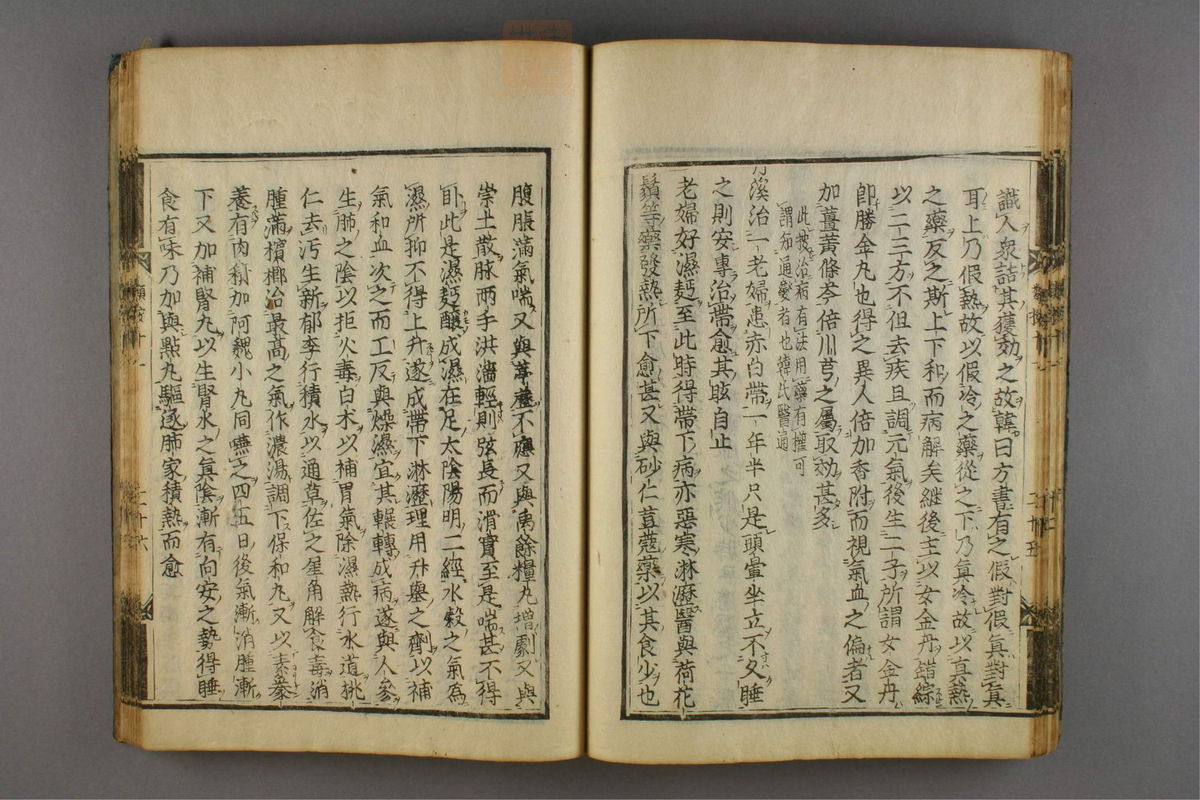 識入衆詰其獲効之故韓曰方書有之假對假真對真
耳上乃假熱故以假冷之藥從之下乃真冷故以真熱
之藥反之斯上下和而病解矣継後主以女金丹錯綜
以二三方不但去疾且調元氣後生二子所謂女金丹
即勝金丸也得之異人倍加香附而視氣血之偏者又
加薑黄條芩倍川芎之屬取効甚多
此按治病有法用藥有權可
謂知通變者也韓氏醫通
丹溪治一老婦患赤白帶一年半只是頭暈坐立不久睡
之則安專治帶愈其眩自止
老婦好濕麪至此時得帶下病亦惡寒淋瀝醫與荷花
鬚等藥發熱所下愈甚又與砂仁荳蔻藥以其食少也
腹脹滿氣喘又與葶藶不應又與禹餘糧丸增劇又與
崇土散脉兩手洪濇輕則弦長而滑實至是喘甚不得
卧此是濕麪釀成濕在足太陰陽明二經水穀之氣為
濕所抑不得上升遂成帶下淋瀝理用升舉之劑以補
氣和血次之而工反與燥濕宜其輾轉成病遂與人參
生肺之陰以拒火毒白朮以補胃氣除濕熱行水道桃
仁去汚生新郁李行積水以通草佐之犀角解食毒消
腫滿檳榔治最高之氣作濃湯調下保和丸又以素豢
養有肉積加阿魏小丸同嚥之四五日後氣漸消腫漸
下又加補腎丸以生腎水之真陰漸有向安之勢得睡
食有味乃加與點丸驅逐肺家積熱而愈